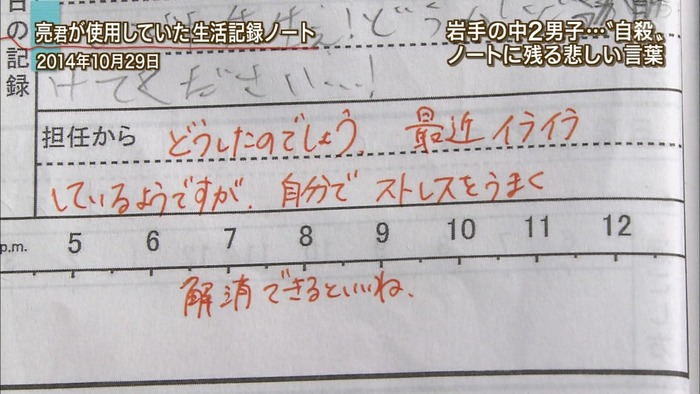 亮君が使用していた生活記録ノート
2014年10月29日
岩手の中2男子…〝自殺〟
ノートに残る悲しい言葉
日の記録
けてください…!
担任から
どうしたのでしょう。 最近 イライラ
しているようですが、自分で ストレスをうまく
p.m. 5 6 7 8 9 10 11 12
解消できるといいね。